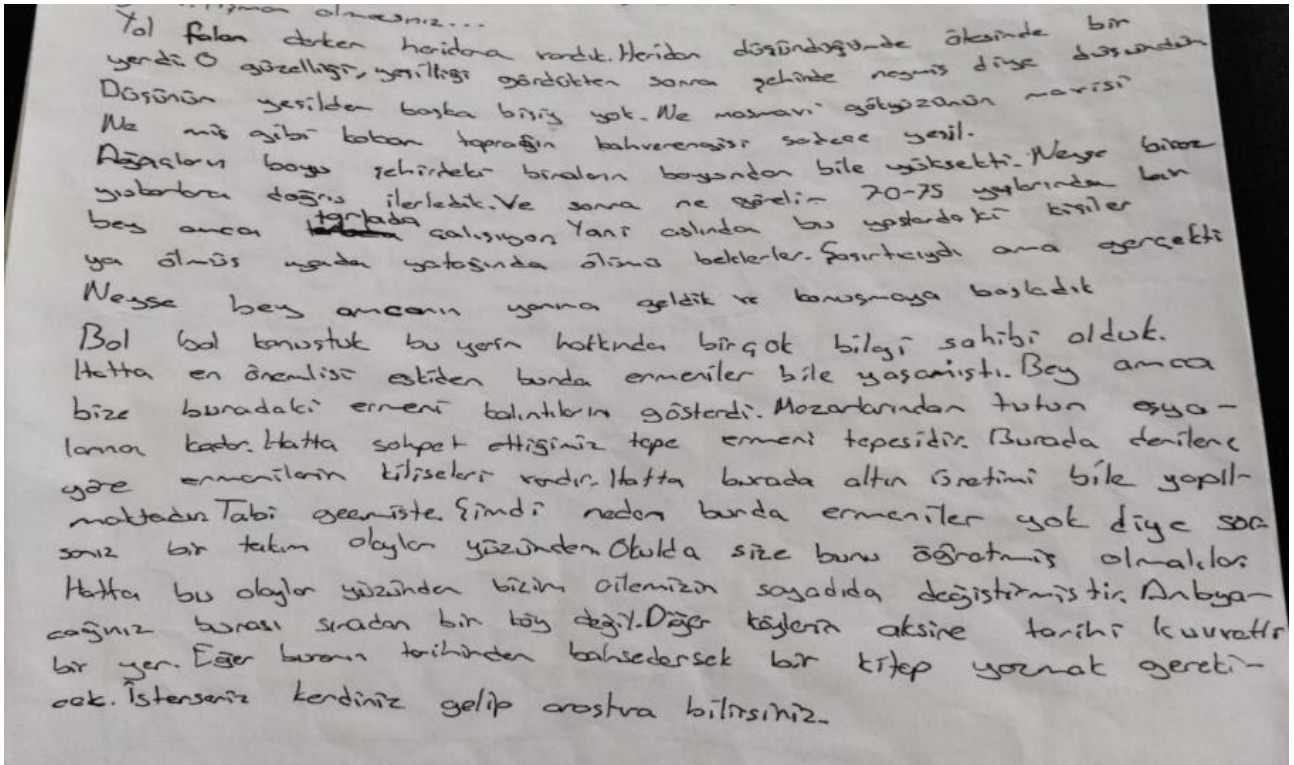 olmasınız...
Yol falan derken heridona vardık. Heridon düşündüğümde ötesinde bir
yerdi. O güzelliği, yeşilliği gördükten sonra şehirde neymiş diye düşündüm
Düşünün yeşilden başka bişiy yok. Ne masmavi gökyüzünün mavisi
Ne mis gibi kokan toprağın kahverengisi sadece yeşil.
Ağaçların boyu şehirdeki binaların boyundan bile yüksekti. Neyse biraz
yukarılara doğru ilerledik. Ve sonra ne görelim 70-75 yaşlarında bir
bey amca tarlada çalışıyor. Yani aslında bu yaşlardaki kişiler
ya ölmüş yada yatağında ölümü beklerler. Şaşırtıcıydı ama gerçekti
Neyse bey amcanın yanına geldik ve konuşmaya başladık
Bol bol konuştuk bu yerin hakkında birçok bilgi sahibi olduk.
Hatta en önemlisi eskiden burda ermeniler bile yaşamıştı. Bey amca
bize buradaki ermeni kalıntıların gösterdi. Mezarlarından tutun eşya-
larına kadar. Hatta sohpet ettiğimiz tepe ermeni tepesidir. Burada denilene
göre ermenilerin kiliseleri vardır. Hatta burada altın üretimi bile yapıl-
maktadır. Tabi geçmişte. Şimdi neden burda ermeniler yok diye sor-
sanız bir takım olaylar yüzünden. Okulda size bunu öğretmiş olmalılar.
Hatta bu olaylar yüzünden bizim ailemizin soyadıda değiştirmiştir. Anlıya-
cağınız burası sıradan bir köy değil. Diğer köylerin aksine tarihi kuvvetli
bir yer. Eğer buranın tarihinden bahsedersek bir kitap yazmak gereki-
cek. İsterseniz kendiniz gelip araştıra bilirsiniz.